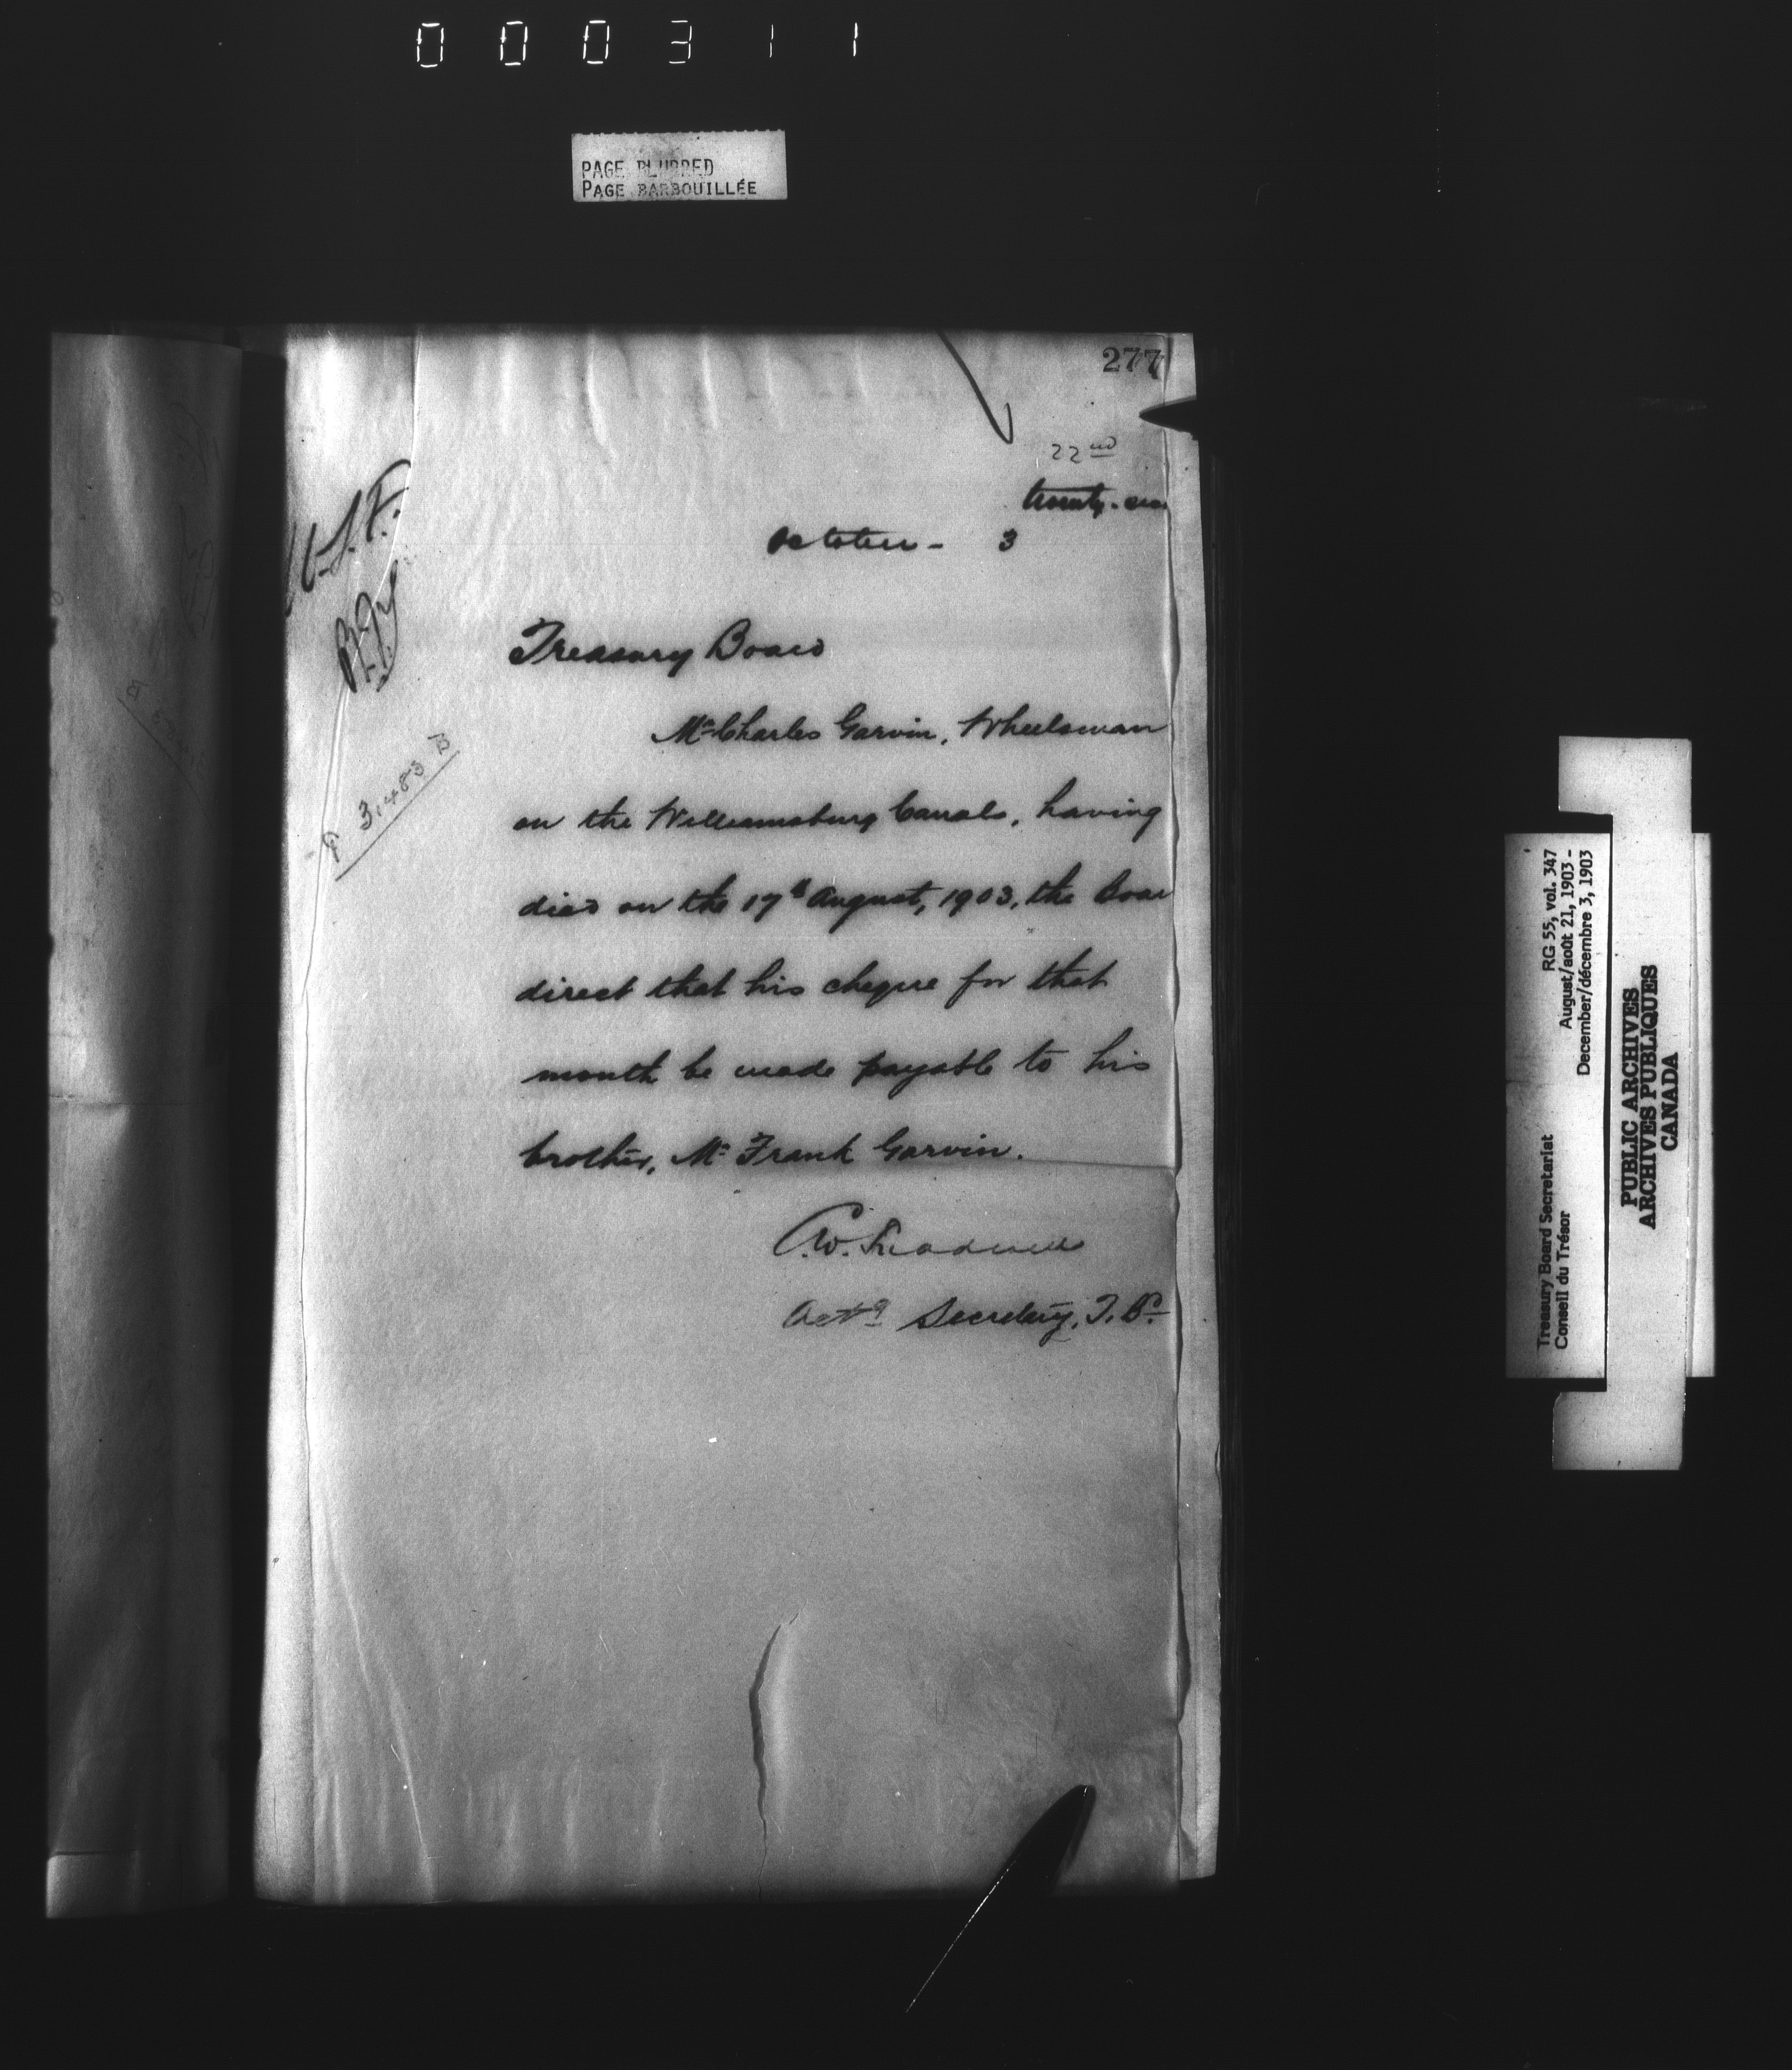 000311
PAGE BLURRED
PAGE BARBOUILLÉE
277
22nd
twenty-
October - 3
P 31483 B
Treasury Board
Mr Charles Garvin, Wheelsman
on the Williamsburg Canals, having
died on the 17th August, 1903, the Boar
direct that his cheque for that
month be made payable to his
brother, Mr Frank Garvin.
Actg Secretary, T. Bd
Treasury Board Secretariat RG 55, vol. 347
Conseil du Trésor August/août 21, 1903 -
December/décembre 3, 1903
PUBLIC ARCHIVES
ARCHIVES PUBLIQUES
CANADA